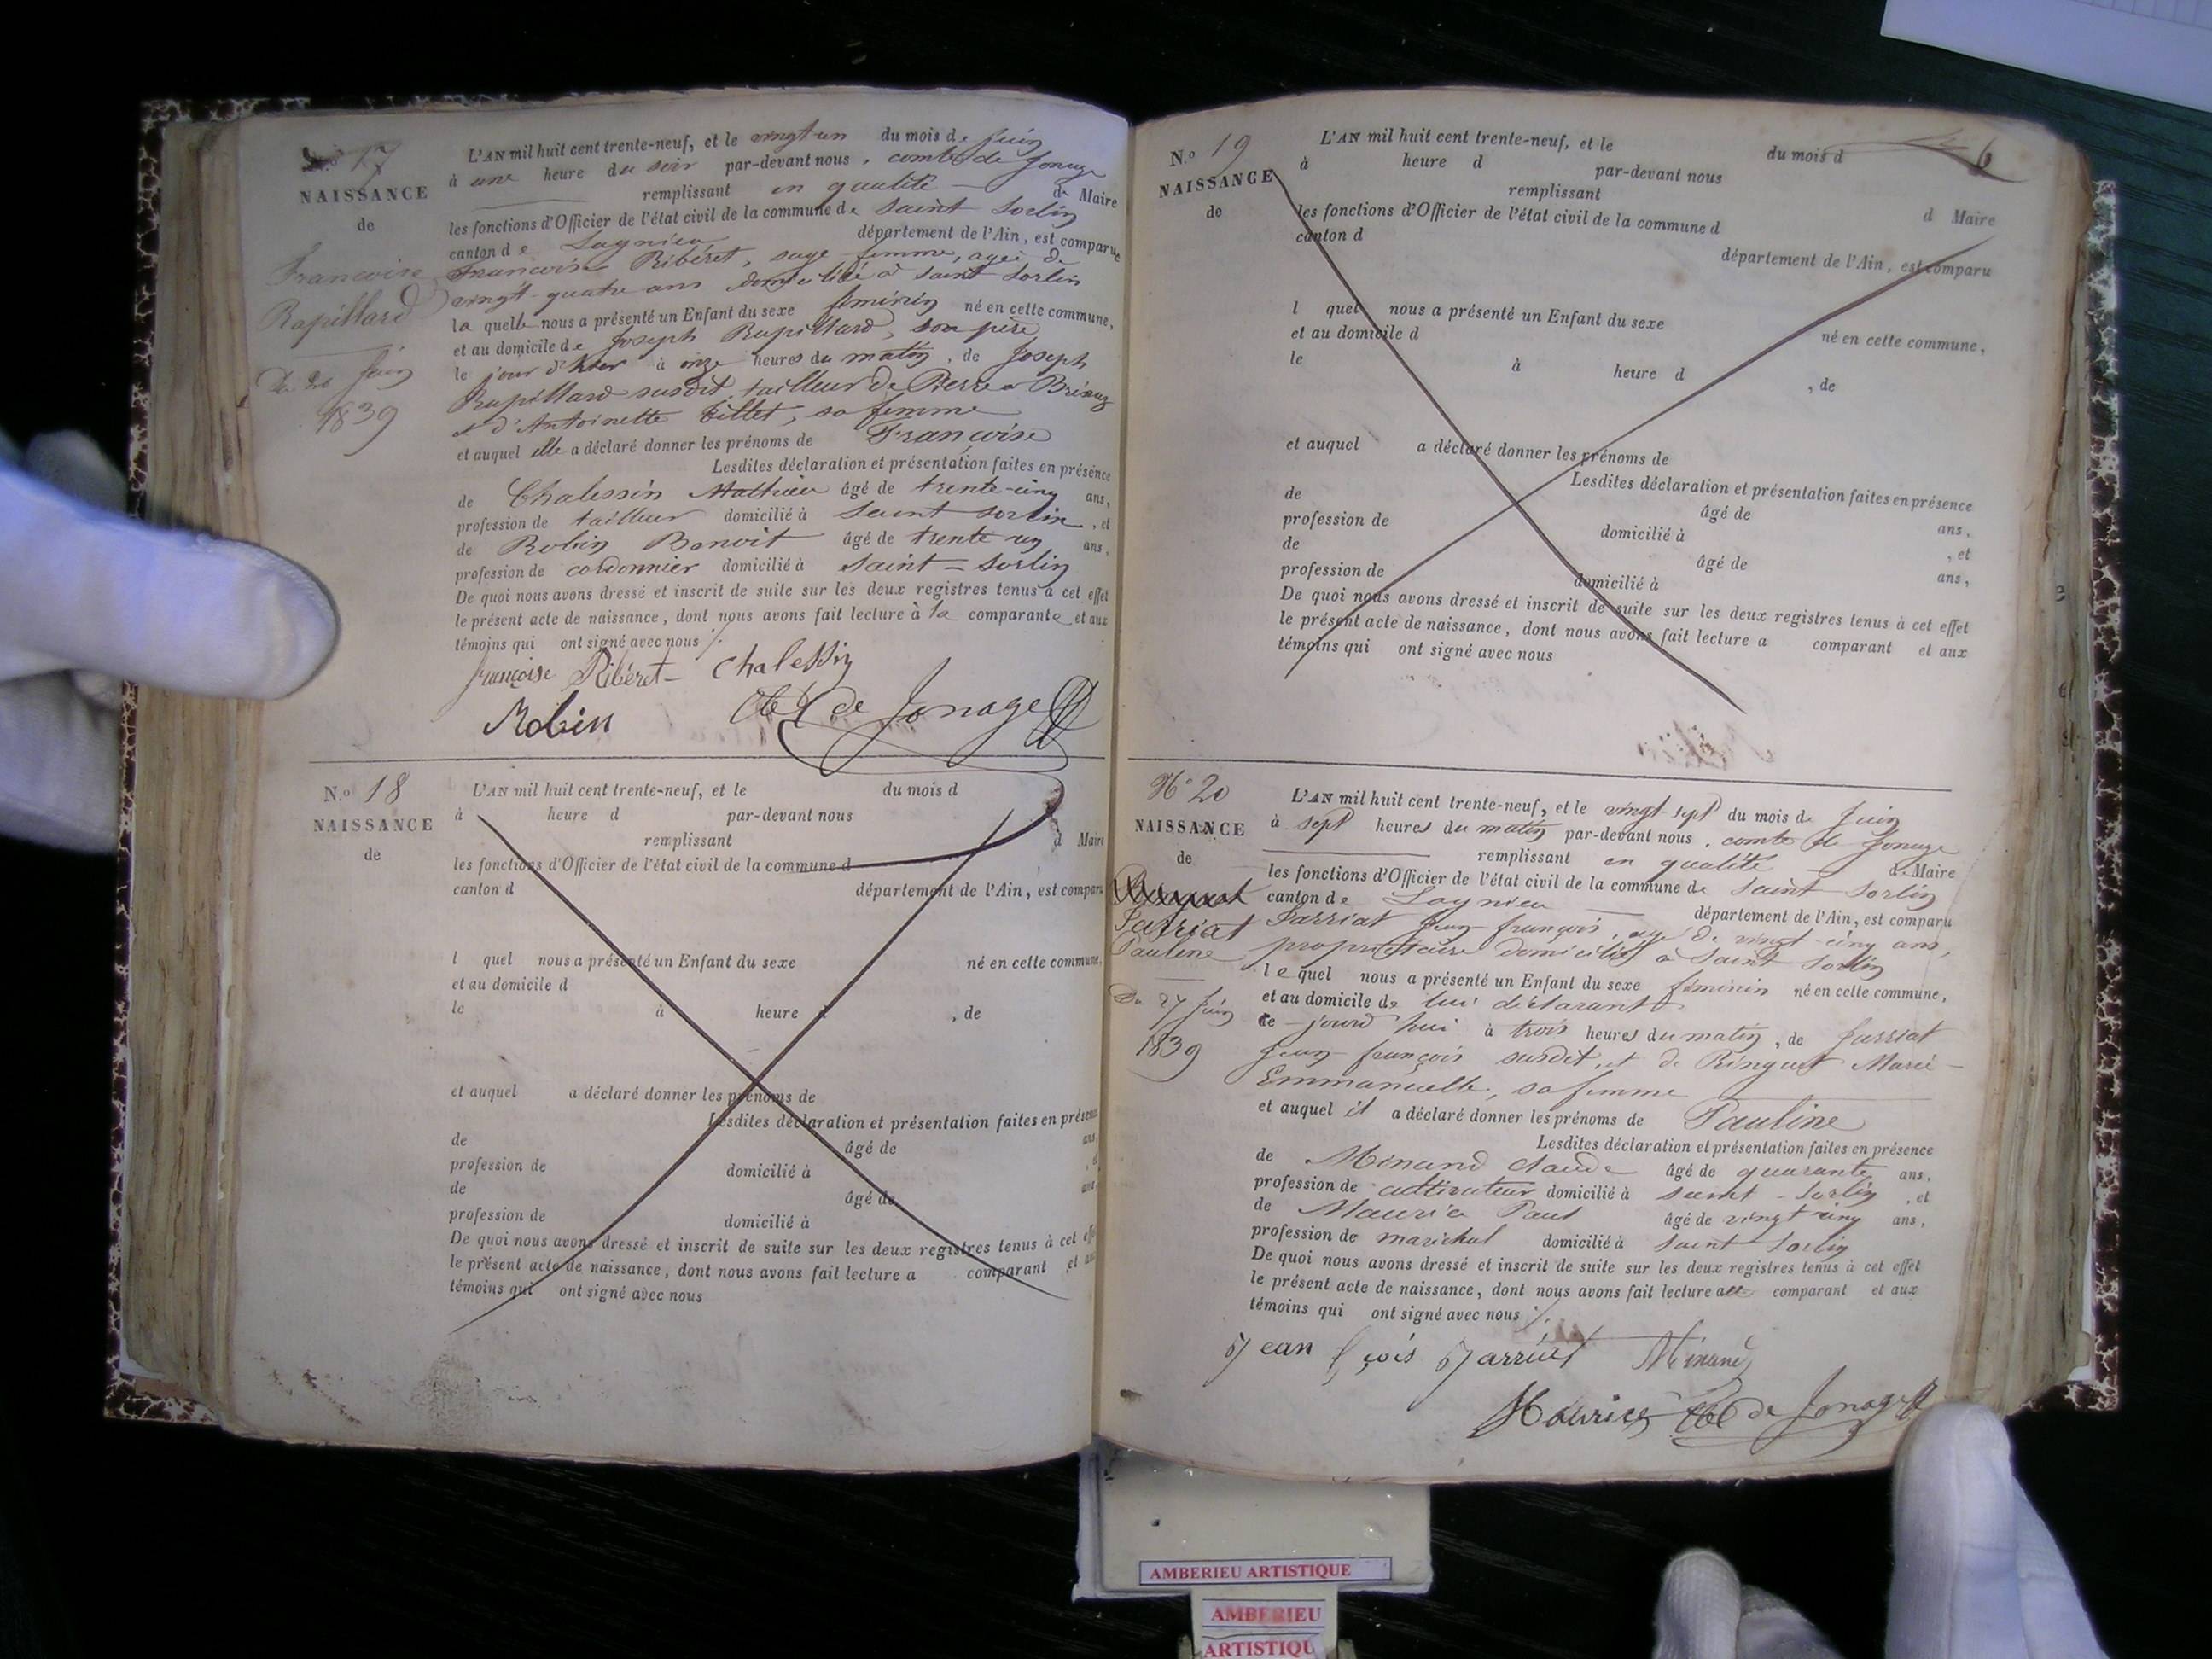 N.o 17
NAISSANCE
de
Francoise
Rapillard
Du 20 Juin
1839
L'AN mil huit cent trente-neuf, et le vingt-un du mois de Juin
à une heure du soir par-devant nous, comte de Jonage
remplissant en qualité de Maire
les fonctions d'Officier de l'état civil de la commune de Saint Sorlin
canton de Lagnieu département de l'Ain, est comparue
Francoise Ribéret, sage femme, agée de
vingt-quatre ans domiciliée à Saint Sorlin
laquelle nous a présenté un Enfant du sexe féminin né en cette commune,
et au domicile de Joseph Rapillard, son père
le jour d'hier à onze heures du matin, de Joseph
Rapillard susdit, tailleur de Pierre à
et d'Antoinette Billet, sa femme
et auquel elle a déclaré donner les prénoms de Françoise
Lesdites déclaration et présentation faites en présence
de Chalessin Mathieu âgé de trente-cinq ans,
profession de tailleur domicilié à Saint Sorlin, et
de Robin Benoit âgé de trente un ans,
profession de cordonnier domicilié à Saint-Sorlin
De quoi nous avons dressé et inscrit de suite sur les deux registres tenus à cet effet
le présent acte de naissance, dont nous avons fait lecture à la comparante et aux
témoins qui ont signé avec nous ./.
françoise Ribéret Chalessin
Robin Cte de Jonage
N.o 18
NAISSANCE
de
L'AN mil huit cent trente-neuf, et le du mois d
à heure d par-devant nous
remplissant d Maire
les fonctions d'Officier de l'état civil de la commune d
canton d département de l'Ain, est comparu
l quel nous a présenté un Enfant du sexe né en cette commune,
et au domicile d
le à heure d , de
et auquel a déclaré donner les prénoms de
Lesdites déclaration et présentation faites en présence
de âgé de ans,
profession de domicilié à , et
de âgé de ans,
profession de domicilié à
De quoi nous avons dressé et inscrit de suite sur les deux registres tenus à cet effet
le présent acte de naissance, dont nous avons fait lecture a comparant et aux
témoins qui ont signé avec nous
6
N.o 19
NAISSANCE
de
L'AN mil huit cent trente-neuf, et le du mois d
à heure d par-devant nous
remplissant d Maire
les fonctions d'Officier de l'état civil de la commune d
canton d département de l'Ain, est comparu
l quel nous a présenté un Enfant du sexe né en cette commune,
et au domicile d
le à heure d , de
et auquel a déclaré donner les prénoms de
Lesdites déclaration et présentation faites en présence
de âgé de ans,
profession de domicilié à , et
de âgé de ans,
profession de domicilié à
De quoi nous avons dressé et inscrit de suite sur les deux registres tenus à cet effet
le présent acte de naissance, dont nous avons fait lecture a comparant et aux
témoins qui ont signé avec nous
N° 20
NAISSANCE
de
Jarriat
Pauline
Du 27 Juin
1839
L'AN mil huit cent trente-neuf, et le vingt-sept du mois de Juin
à sept heures du matin par-devant nous, comte de Jonage
remplissant en qualité de Maire
les fonctions d'Officier de l'état civil de la commune de Saint Sorlin
canton de Lagnieu département de l'Ain, est comparu
Jarriat Jean françois, agé de vingt-cinq ans,
propriétaire domicilié à Saint Sorlin
lequel nous a présenté un Enfant du sexe féminin né en cette commune,
et au domicile de lui déclarant
ce-jourd'hui à trois heures du matin, de Jarriat
Jean-françois susdit, et de Ringuet Marie-
Emmanuelle, sa femme
et auquel il a déclaré donner les prénoms de Pauline
Lesdites déclaration et présentation faites en présence
de Minand claude âgé de quarante ans,
profession de cultivateur domicilié à Saint-Sorlin, et
de Maurice Paul âgé de vingt cinq ans,
profession de maréchal domicilié à Saint-Sorlin
De quoi nous avons dressé et inscrit de suite sur les deux registres tenus à cet effet
le présent acte de naissance, dont nous avons fait lecture au comparant et aux
témoins qui ont signé avec nous ./.
Jean fçois Jarriat Minand
Maurice Cte de Jonage
AMBERIEU ARTISTIQUE
AMBERIEU
ARTISTIQU